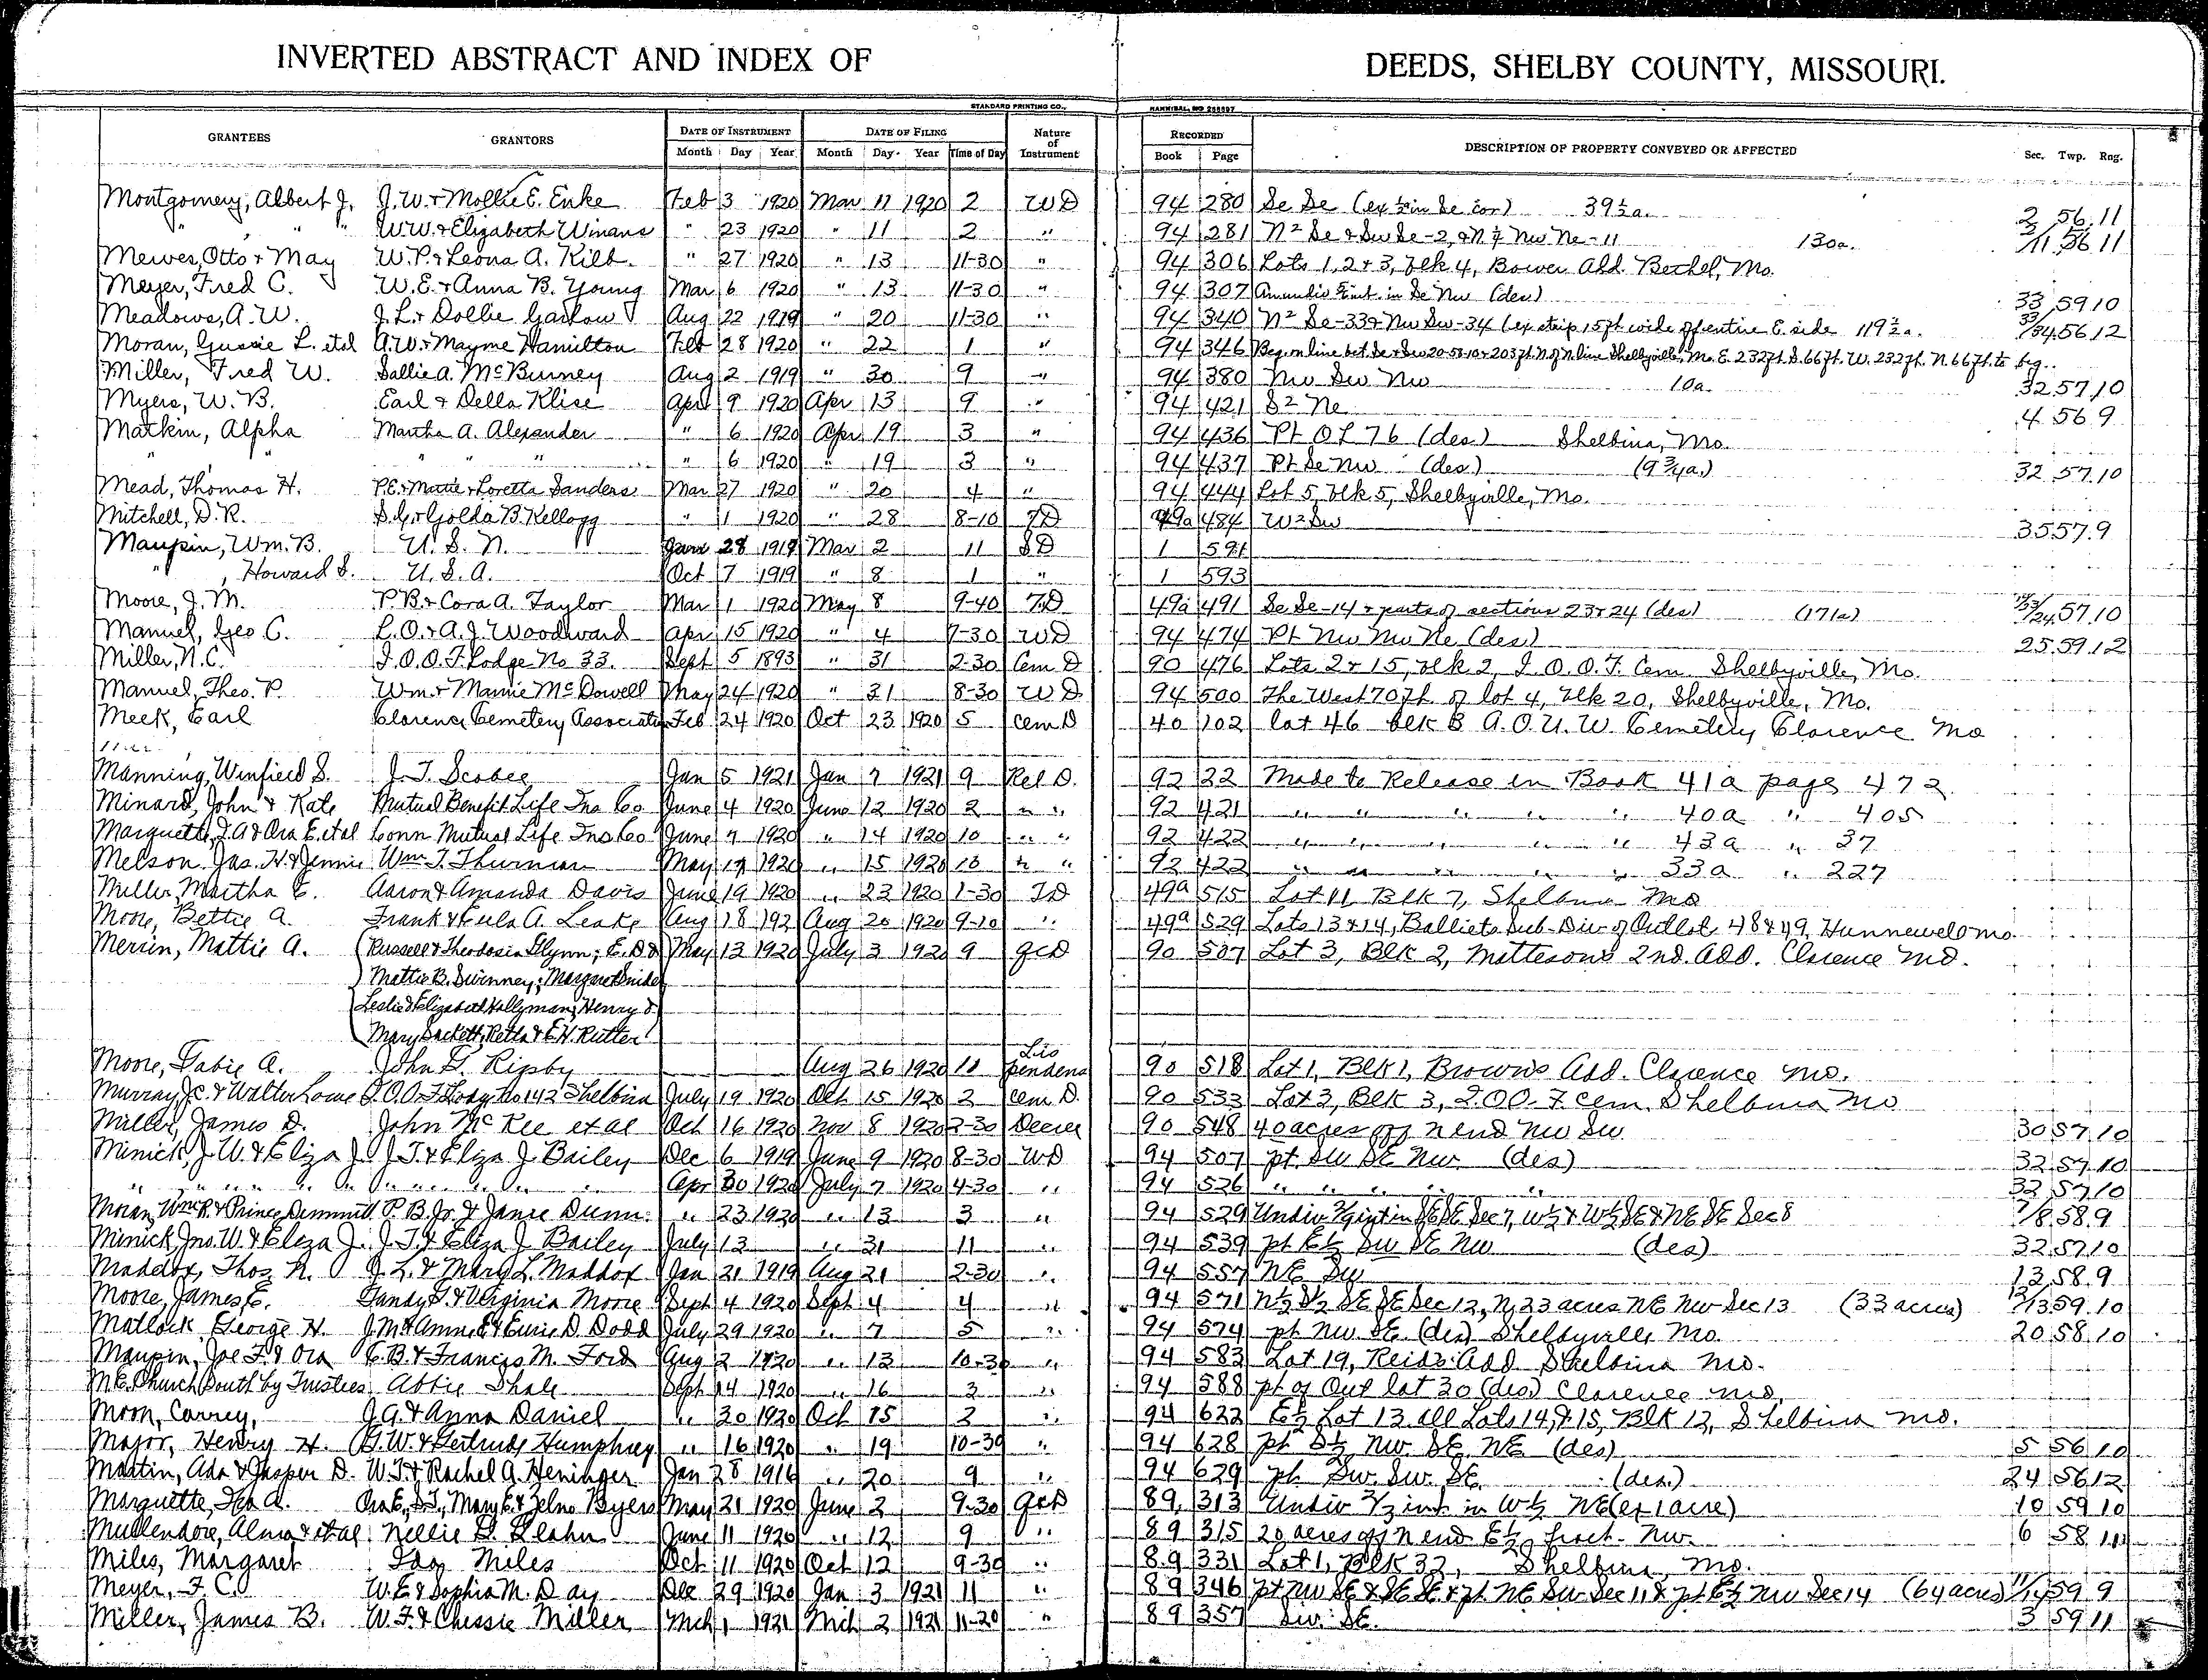 INVERTED ABSTRACT AND INDEX OF DEEDS, SHELBY COUNTY, MISSOURI.
STANDARD PRINTING CO., HANNIBAL, MO
GRANTEES GRANTORS DATE OF INSTRUMENT DATE OF FILING Nature of Instrument RECORDED DESCRIPTION OF PROPERTY CONVEYED OR AFFECTED Sec. Twp. Rng.
Month Day Year Month Day Year Time of Day Book Page
Montgomery, Albert J. J. W. & Mollie E. Enke Feb 3 1920 Mar 11 1920 2 WD 94 280 Se Se (ex in Se cor) 39½a. 2 56 11
" " " W.W. & Elizabeth Winans " 23 1920 " 11 2 " 94 281 N² Se & Sw Se-2, & N½ Nw Ne-11 130a. 2/11 56 11
Mewes, Otto & May W. P. & Leona A. Kilb. " 27 1920 " 13 11-30 " 94 306 Lots 1, 2 & 3, Blk 4, Bower Add. Bethel, Mo.
Meyer, Fred C. W. E. & Anna B. Young Mar 6 1920 " 13 11-30 " 94 307 an undiv int. in Se Nw (des) 33 59 10
Meadows, A. W. J. L. & Dollie Garlow Aug 22 1919 " 20 11-30 " 94 340 N² Se-33 & Nw Sw-34 (ex strip 15 ft wide off entire E. side 119½a. 33/34 56 12
Moran, Gussie L. etal A. W. & Mayme Hamilton Feb 28 1920 " 22 1 " 94 346 Beg. on line bet. Se & Sw 20-58-10 & 203 ft. N. of N. line Shelbyville, Mo. E. 232 ft. S. 66 ft. W. 232 ft. N. 66 ft. to beg..
Miller, Fred W. Sallie A. McBurney Aug 2 1919 " 30 9 " 94 380 Nw Sw Nw 10a. 32 57 10
Myers, W. B. Earl & Della Klise Apr 9 1920 Apr 13 9 " 94 421 S² Ne 4 56 9
Matkin, Alpha Martha A. Alexander " 6 1920 Apr 19 3 " 94 436 Pt O L 76 (des) Shelbina, Mo.
" " " " " " 6 1920 " 19 3 " 94 437 Pt Se Nw (des) (9¾a.) 32 57 10
Mead, Thomas H. P. E. & Matie & Loretta Sanders Mar 27 1920 " 20 4 " 94 444 Lot 5, Blk 5, Shelbyville, Mo.
Mitchell, D. R. S. G. & Golda B. Kellogg " 1 1920 " 28 8-10 TD 49a 484 W² Sw 35 57 9
Maupin, Wm. B. U. S. N. 28 1919 Mar 2 11 SD 1 591
" , Howard S. U. S. A. Oct 7 1919 " 8 1 " 1 593
Moore, J. M. P. B. & Cora A. Taylor Mar 1 1920 May 8 9-40 T.D 49a 491 Se Se-14 & parts of sections 23 & 24 (des) (171a) 14/23/24 57 10
Manuel, Geo C. L. O. & A. J. Woodward Apr 15 1920 " 4 7-30 WD 94 474 Pt Nw Nw Ne (des) 25 59 12
Miller, N. C. I. O. O. F. Lodge No 33. Sept 5 1893 " 31 2-30 Cem D 90 476 Lots 2 & 15, Blk 2, I. O. O. F. Cem. Shelbyville, Mo.
Manuel, Theo. P. Wm. & Mamie McDowell May 24 1920 " 31 8-30 W D 94 500 The West 70 ft. of lot 4, Blk 20, Shelbyville, Mo.
Meek, Earl Clarence Cemetery Association Feb 24 1920 Oct 23 1920 5 cem D 40 102 lot 46 blk B A. O. U. W. Cemetery Clarence Mo
Manning, Winfield S. J. T. Scobee Jan 5 1921 Jan 7 1921 9 Rel D. 92 22 Made to Release in Book 41a page 472
Minard, John & Kate Mutual Benefit Life Ins Co. June 4 1920 June 12 1920 2 " " 92 421 " " " " 40a " 405
Marquette, I. A & Ora E. etal Conn Mutual Life Ins Co June 7 1920 " 14 1920 10 " " 92 422 " " " " " 43a " 37
Melson, Jas. H. & Jennie Wm. T. Thurman May 19 1920 " 15 1920 10 " " 92 422 " " " " 33a " 227
Miller, Martha E. Aaron & Amanda Davis June 19 1920 " 23 1920 1-30 TD 49a 515 Lot 11, Blk 7, Shelbina Mo
Moore, Bettie A. Frank & Eula A. Leake Aug 18 192 Aug 20 1920 9-10 " 49a 529 Lots 13 & 14, Balliets Sub-Div of Outlots 48 & 49, Hunnewell Mo.
Merrin, Mattie A. (Russell & Theodosia Glynn; E. D & May 13 1920 July 3 1920 9 QCD 90 507 Lot 3, Blk 2, Mattesons 2nd. Add. Clarence Mo.
Mattie B. Swinney; Margaret Snider
Leslie & Elizabeth Hollyman; Henry &
Mary Sackett, Retta & E. H. Rutter
Moore, Gabie A. John G. Ripby Aug 26 1920 11 Lis pendens 90 518 Lot 1, Blk 1, Browns Add. Clarence Mo.
Murray, J C. & Walter Lowe I. O. O. F. Lodge No 142 Shelbina July 19 1920 Oct 15 1920 2 Cem D. 90 533 Lot 3, Blk 3, I. O. O. F. Cem. Shelbina Mo
Miller, James D. John McKee et al Oct 16 1920 Nov 8 1920 2-30 Decree 90 548 40 acres off N end Nw Sw 30 57 10
Minick, J. W. & Eliza J. J. T. & Eliza J. Bailey Dec 6 1919 June 9 1920 8-30 WD 94 507 pt. SW SE NW (des) 32 57 10
" " " " " " " " Apr 30 1920 July 7 1920 4-30 " 94 526 " " " " " 32 57 10
Moran, Wm R. & Prince Dimmitt P. B. Jr. & Janie Dunn. " 23 1920 " 13 3 " 94 529 Undiv int in SE SE Sec 7, W½ & W½ SE & NE SE Sec 8 7/8 58 9
Minick, Jno. W. & Eliza J. J. T. & Eliza J. Bailey July 13 " 31 11 " 94 539 pt E½ SW SE NW (des) 32 57 10
Maddox, Thos. N. J. L. & Mary L. Maddox Jan 21 1919 Aug 21 2-30 " 94 557 NE SW 13 58 9
Moore, James E. Tandy G. & Virginia Moore Sept 4 1920 Sept 4 4 " 94 571 N½ S½ SE SE Sec 12, N 23 acres NE NW Sec 13 (33 acres) 12/13 59 10
Matlock, George H. J. M. & Annie E & Eunice D. Dodd July 29 1920 " 7 5 " 94 574 pt NW SE (des) Shelbyville, Mo. 20 58 10
Maupin, Joe F. & Ora E. B. & Francis M. Ford Aug 2 1920 " 13 10-30 " 94 583 Lot 19, Reids Add. Shelbina Mo.
M. E. Church South by Trustees Abbie Shale Sept 14 1920 " 16 3 " 94 588 pt of Out lot 30 (des) Clarence Mo.
Moon, Carrey, J. A. & Anna Daniel " 20 1920 Oct 15 2 " 94 622 E½ Lot 13 all Lots 14, & 15, Blk 12, Shelbina Mo.
Major, Henry H. G. W. & Gertrude Humphrey " 16 1920 " 19 10-30 " 94 628 pt S½ NW SE NE (des) 5 56 10
Martin, Ada & Jasper D. W. T. & Rachel A. Heninger Jan 28 1916 " 20 9 " 94 629 pt SW. SW. SE. (des.) 24 56 12
Marquette, Ira A. Ora E., S. T., Mary E. & Zelna Byers May 21 1920 June 2 9-30 QCD 89 313 Undiv ⅔ int. in W½ NE (ex 1 acre) 10 59 10
Mullendore, Alma et al Nellie G. Slahn June 11 1920 " 12 9 " 89 315 20 acres off N end E½ fract. NW. 6 58 11
Miles, Margaret Ida Miles Oct 11 1920 Oct 12 9-30 " 89 331 Lot 1, Blk 32, Shelbina, Mo.
Meyer, F. C. W. E & Sophia M. Day Dec 29 1920 Jan 3 1921 11 " 89 346 pt NW SE & SE SE & pt. NE SW Sec 11 & pt E½ NW Sec 14 (64 acres) 11/14 59 9
Miller, James B. W. F. & Chessie Miller Mch 1 1921 Mch 2 1921 11-20 " 89 357 SW. SE. 3 59 11